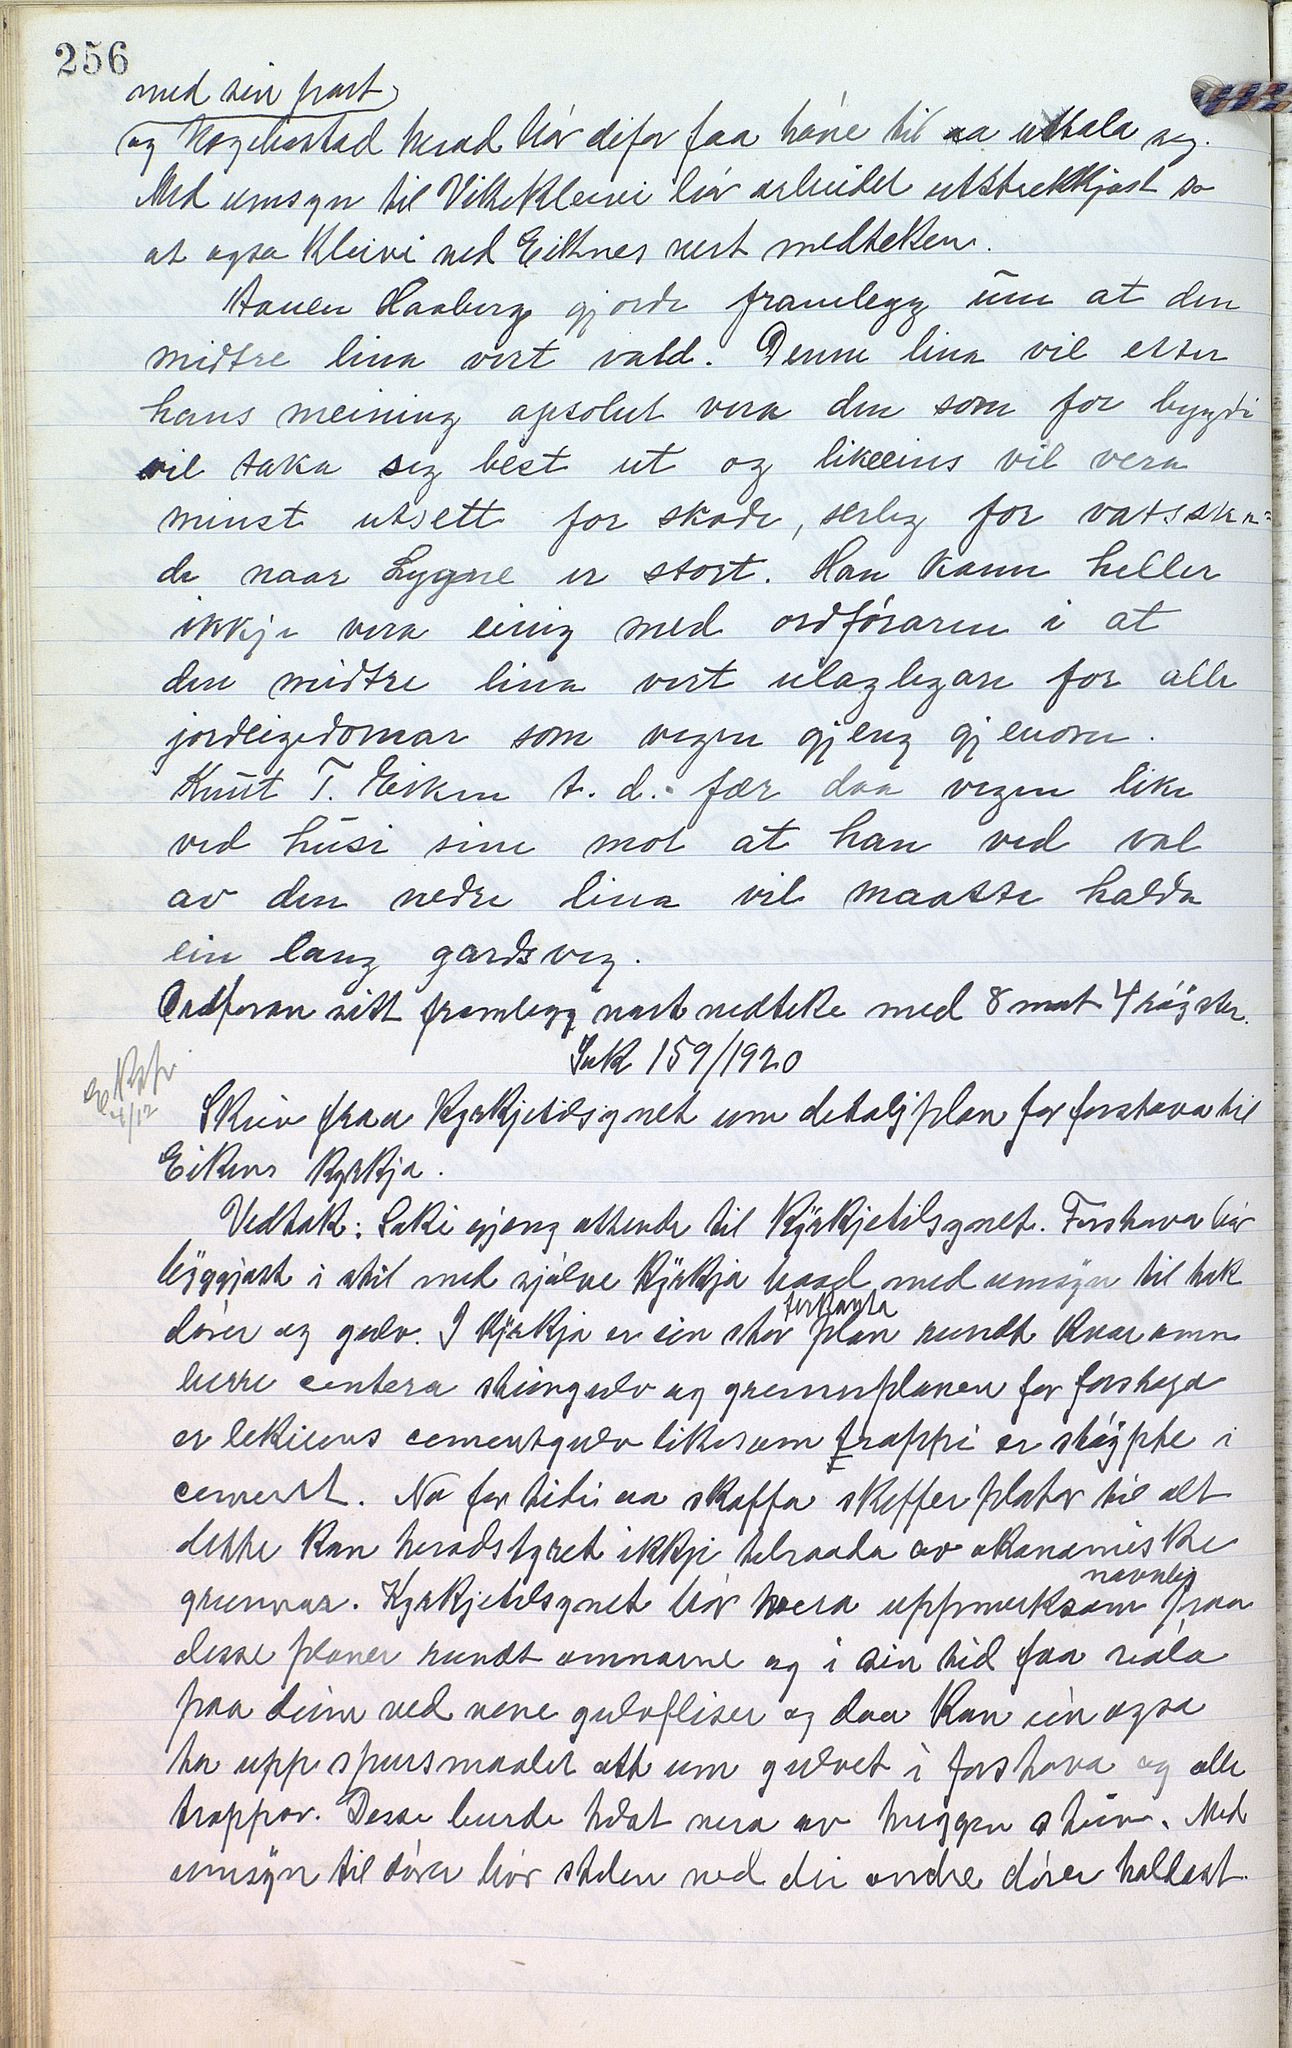 256
med sin part
og Hægebostad herad bør difor faa höve til aa uttala seg.
Med umsyn til Vikekleivi bör arbeidet utstrekkjast so
at ogsa Kleivi ved Eiknes vert medteken.
Haaberg gjorde framlegg um at den
midtre lina vert vald. Denne lina vil etter
hans meining apsolut vera den som for bygdi
vil taka seg best ut og likeeins vil vera
minst utsett for skade, serleg for vatsska=
de naar Lygne er stort. Han kann heller
ikkje vera einig med ordföraren i at
den midtre lina vert ulaglegare for alle
jordeigedomar som vegen gjeng gjenom.
Knut T. Eiken t. d. fær daa vegen like
ved husi sine mot at han ved val
av den nedre lina vil maatte halda
ein lang gardsveg.
Ordføraren sitt framlegg vart vedteke med 8 mot 4 röyster.
Sak 159/1920
4/12
Skriv fraa Kyrkjetilsynet um detaljplan for forstova til
Eikens kyrkja.
Vedtak: Saki gjeng attende til Kyrkjetilsynet. Forstova bör
byggjast i stil med sjölve kyrkja baad med umsyn til tak
dörer og gulv. I kyrkja er ein stor firkanta plan rundt kvar omn
berre cementera steingulv og grunnplanen for forstoga
er likeeins cementgulv likesom trappi er stöypte i
cement. No for tidi aa skaffa skiferplator til alt
dette kan heradstyret ikkje tilraada av økonomiske
grunnar. Kyrkjetilsynet bör vera uppmerksam navnleg paa
desse planer rundt omnarne og i sin tid faa
paa deim ved nene gulvfliser og daa kan ein ogsa
ta upp spursmaalet att um gulvet i forstova og alle
trappor. Desse burde helst vera av huggen stein. Med
umsyn til dörer bör stilen ved dei andre dörer haldast